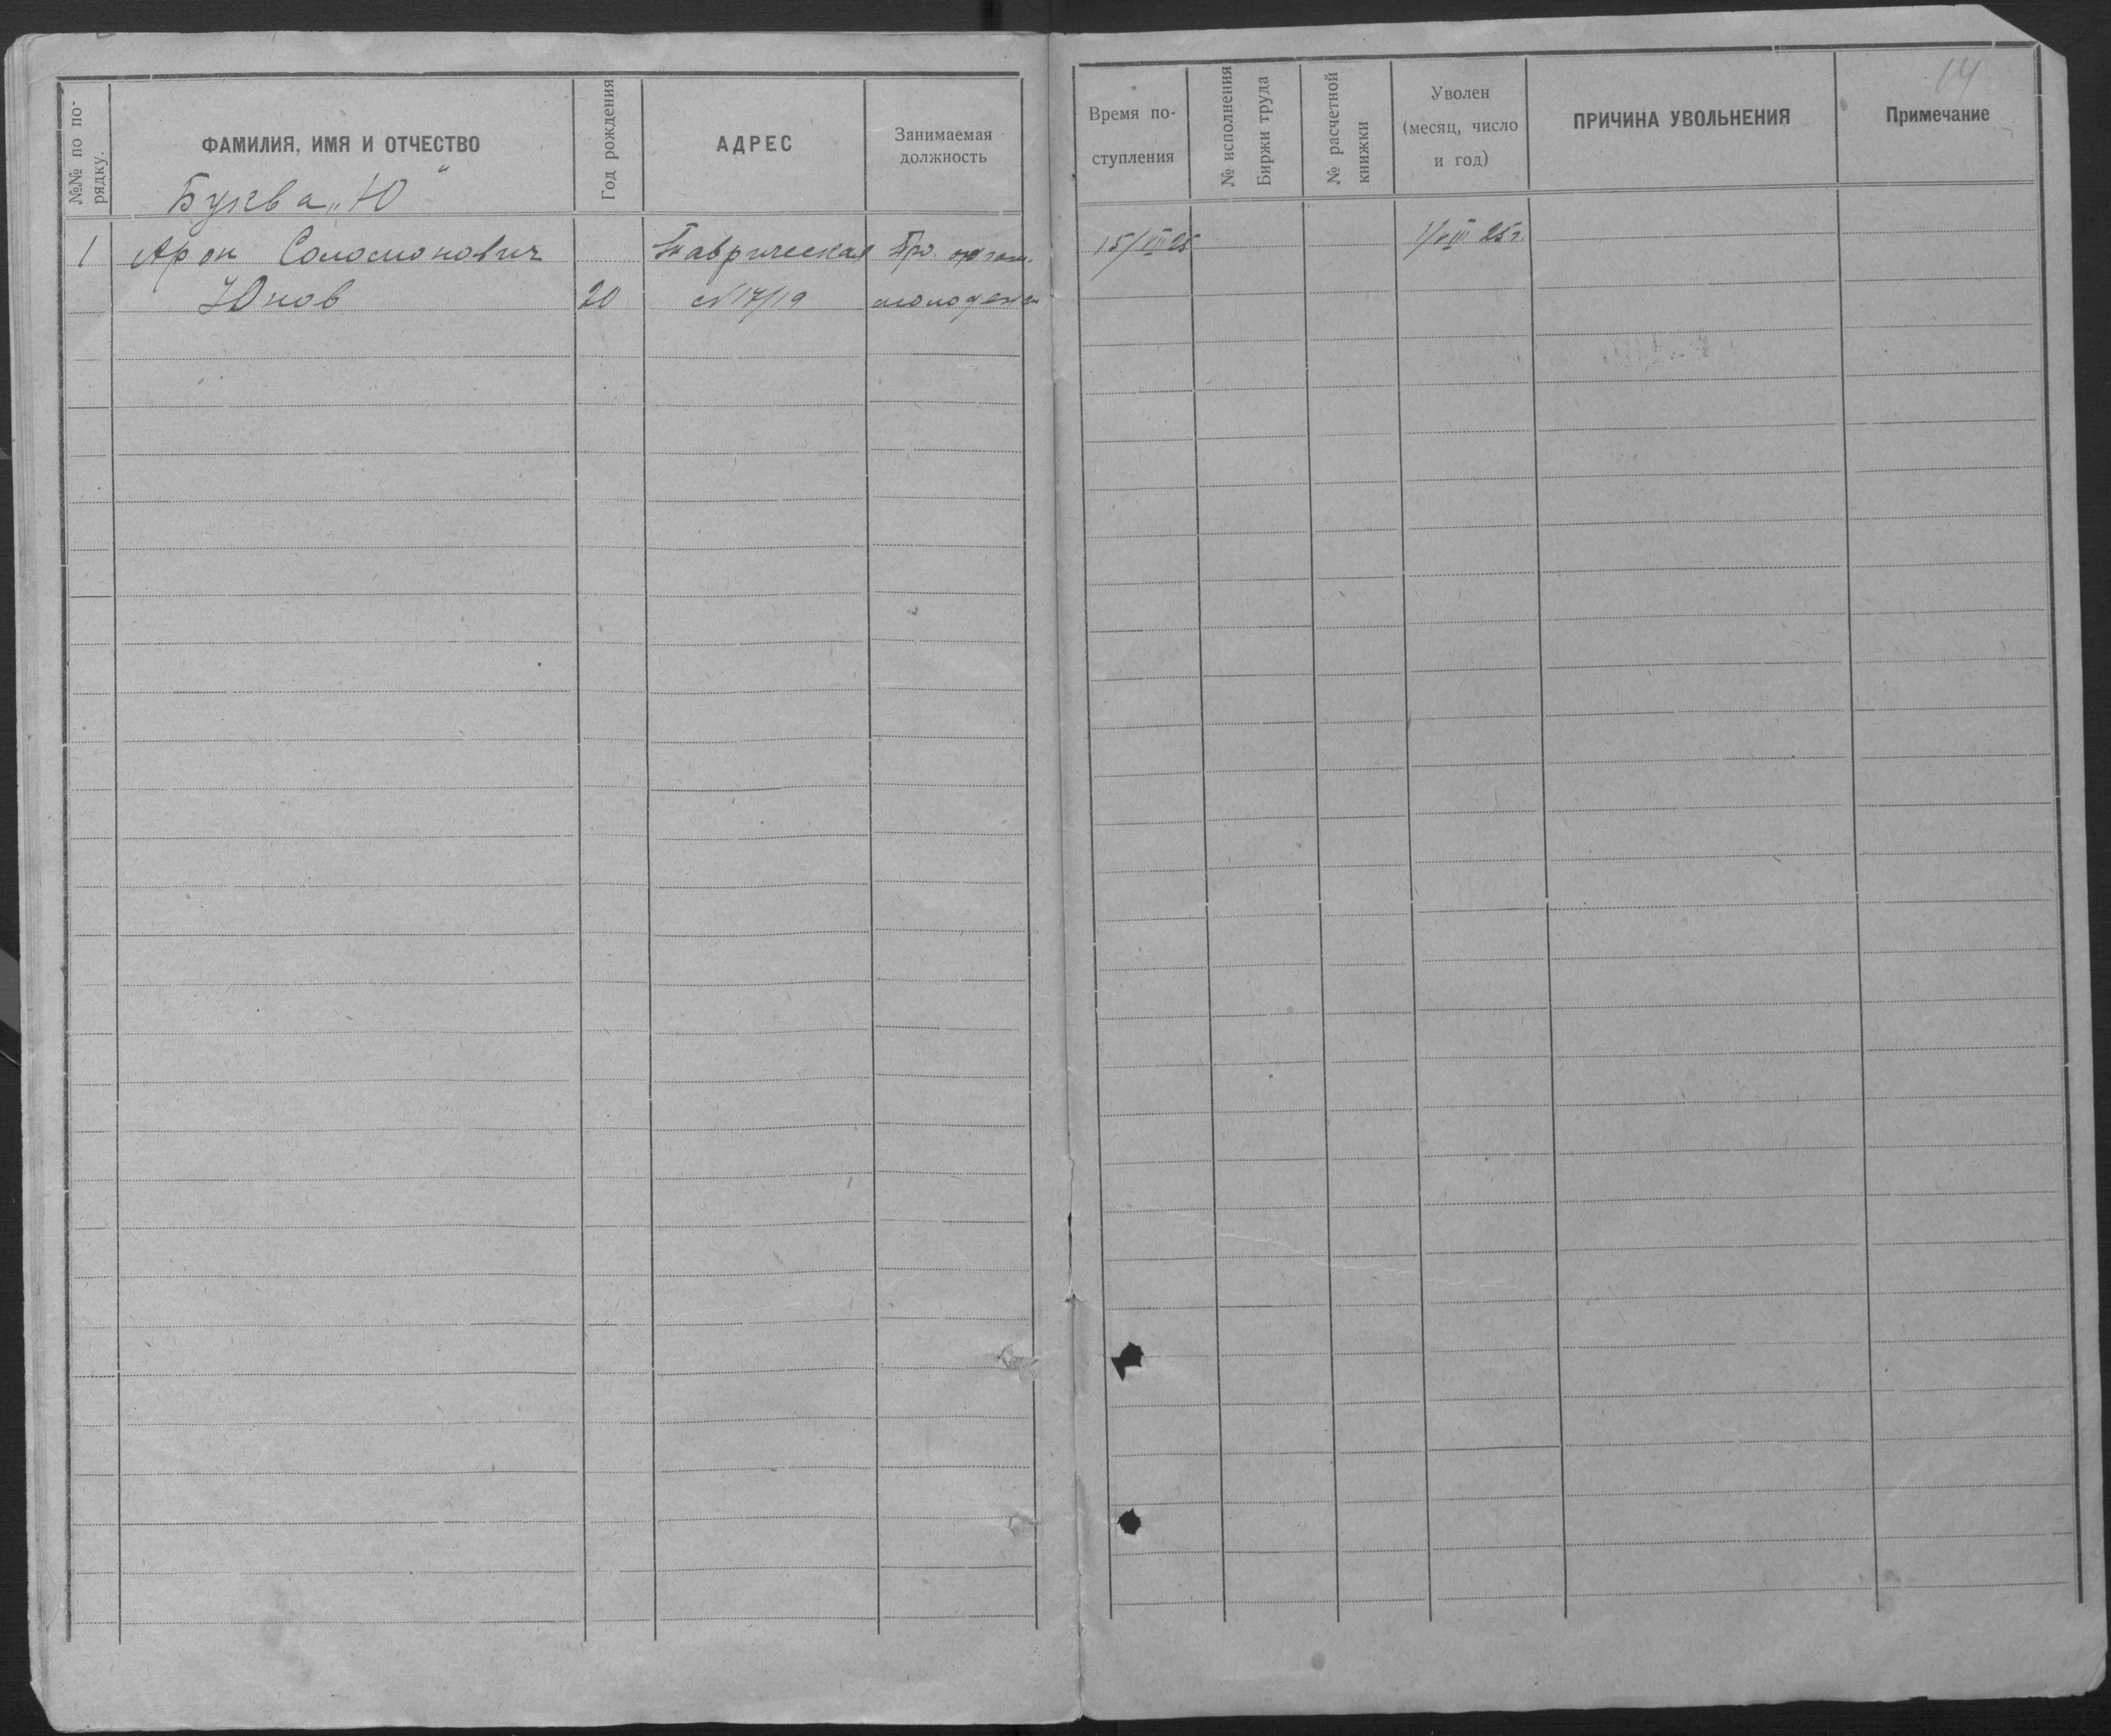 14
№№ по по-
рядку.
ФАМИЛИЯ, ИМЯ И ОТЧЕСТВО
Год рождения
АДРЕС
Занимаемая
должность
Время по-
ступления
№ исполнения
Биржи труда
№ расчетной
книжки
Уволен
(месяц, число
и год)
ПРИЧИНА УВОЛЬНЕНИЯ
Примечание
Буква „Ю"
1 Арон Соломонович Таврическая
Юнов 20 №17/19 молодежи
15/VII 25
1/VIII 25 г.